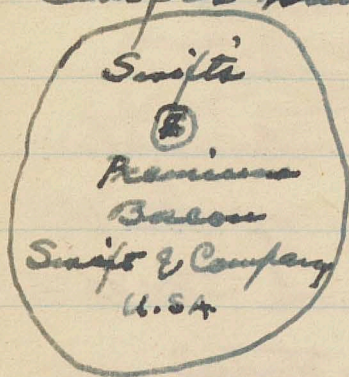 Swift's
Premium
Bacon
Swift & Company
U.S.A